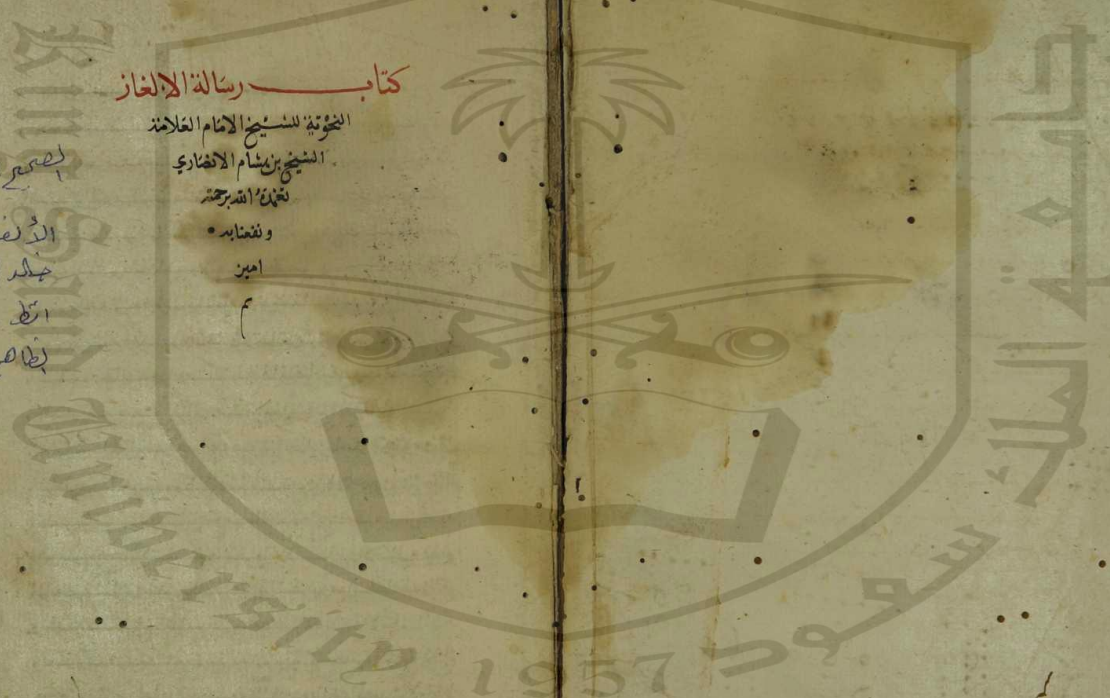 كتاب رسالة الالغاز
النحوية للشيخ الامام العلامة
الشيخ بن هشام الانصاري
تغمده الله برحمته
ونفعنا به
امين
م
الصحيح
خالد
King Saud University
1957
جامعة الملك سعود